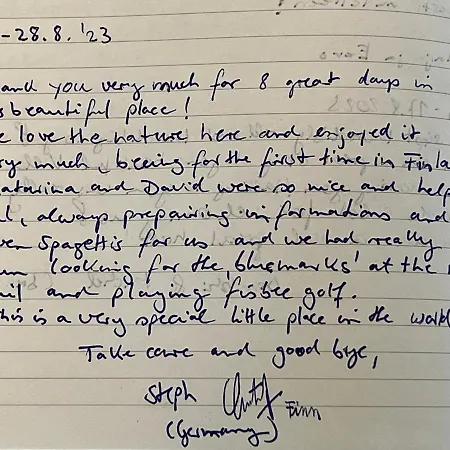 -28.8.'23
and you very much for 8 great days in
beautiful place!
e love the nature here and enjoyed it
ry much, beeing for the first time in Finla
atarina and David were so nice and help
l, always prepairing informations and
ven Spagettis for us and we had really
un looking for the 'bluemarks' at the
ail and playing fisbee golf.
his is a very special little place in the world
Take care and good bye,
Steph Finn
(Germany)